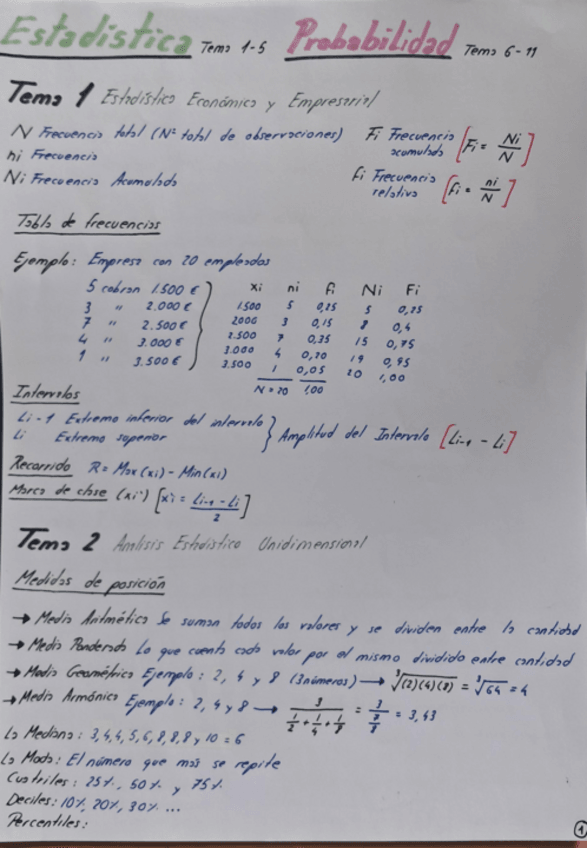 Estadística Tema 1-5 Probabilidad Tema 6-11
Tema 1 Estadística Económica y Empresarial
N Frecuencia total (Nº total de observaciones)
ni Frecuencia
Ni Frecuencia Acumulada
Fi Frecuencia acumulada [Fi = Ni/N]
fi Frecuencia relativa [fi = ni/N]
Tabla de frecuencias
Ejemplo: Empresa con 20 empleados
5 cobran 1.500 €
3 " 2.000 €
7 " 2.500 €
4 " 3.000 €
1 " 3.500 €
xi ni fi Ni Fi
1.500 5 0,25 5 0,25
2000 3 0,15 8 0,4
2.500 7 0,35 15 0,75
3.000 4 0,20 19 0,95
3.500 1 0,05 20 1,00
N = 20 1,00
Intervalos
Li-1 Extremo inferior del intervalo
Li Extremo superior
} Amplitud del Intervalo [Li-1 - Li]
Recorrido R = Max(xi) - Min(xi)
Marca de clase (xi') [xi = Li-1 - Li / 2]
Tema 2 Analisis Estadístico Unidimensional
Medidas de posición
→ Media Aritmética Se suman todos los valores y se dividen entre la cantidad
→ Media Ponderada Lo que cuenta cada valor por el mismo dividido entre cantidad
→ Media Geométrica Ejemplo: 2, 4 y 8 (3 números) → ³√(2)(4)(8) = ³√64 = 4
→ Media Armónica Ejemplo: 2, 4 y 8 → 3 / (1/2 + 1/4 + 1/8) = 3 / (7/8) = 3,43
La Mediana: 3,4,4,5,6,8,8,8 y 10 = 6
La Moda: El número que más se repite
Cuartiles: 25%, 50% y 75%
Deciles: 10%, 20%, 30% ...
Percentiles:
1